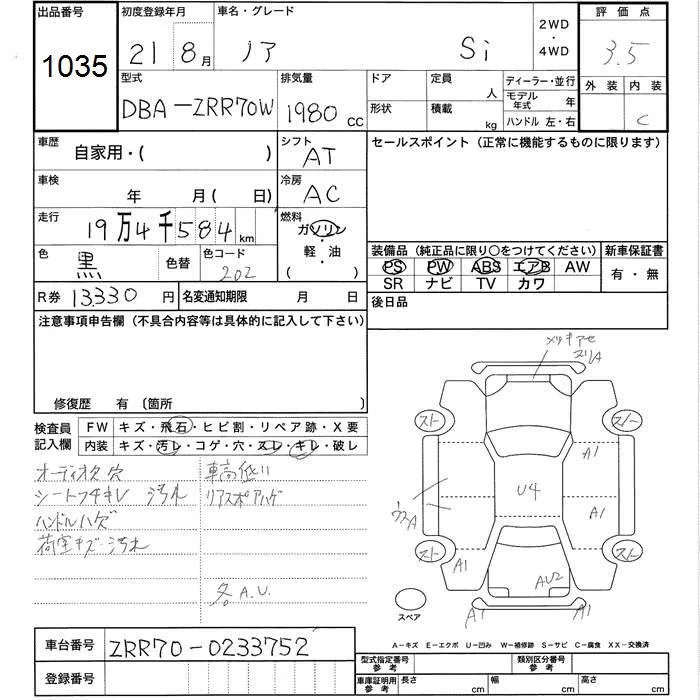 出品番号 初度登録年月 車名・グレード 2WD・4WD 評価点
1035 21 8月 ノア Si 3.5
型式 排気量 ドア 定員 人 ディーラー・並行 外装 内装
DBA-ZRR70W 1980cc 形状 積載 kg モデル年式 年 C
ハンドル 左・右
車歴 自家用・( ) シフト AT セールスポイント(正常に機能するものに限ります)
車検 年 月( 日) 冷房 AC
走行 19万4千584km 燃料 ガソリン・軽・油( )
色 黒 色替 色コード 202
装備品(純正品に限り○をつけてください) 新車保証書
PS PW ABS エアB AW 有・無
SR ナビ TV カワ
R券 13330円 名変通知期限 月 日 後日品
注意事項申告欄(不具合内容等は具体的に記入して下さい)
修復歴 有 〔箇所 〕
検査員記入欄 FW キズ・飛石・ヒビ割・リペア跡・X要
内装 キズ・汚レ・コゲ・穴・スレ・キレ・破レ
オーディオ欠 穴 車高低
シートフチキレ 汚れ リアスポアハゲ
ハンドルハゲ
荷室キズ・汚れ
各A.U.
メッキアセ
スリA
スト スト
A1
U4
A1
ウスA
スト スト
A1 AU2 A1
A1 A1
スペア
A-キズ E-エクボ U-凹み W-補修跡 S-サビ C-腐食 XX-交換済
車台番号 ZRR70-0233752
型式指定番号 参考 類別区分番号 参考
登録番号
車庫証明用 参考 長さ cm 幅 cm 高さ cm